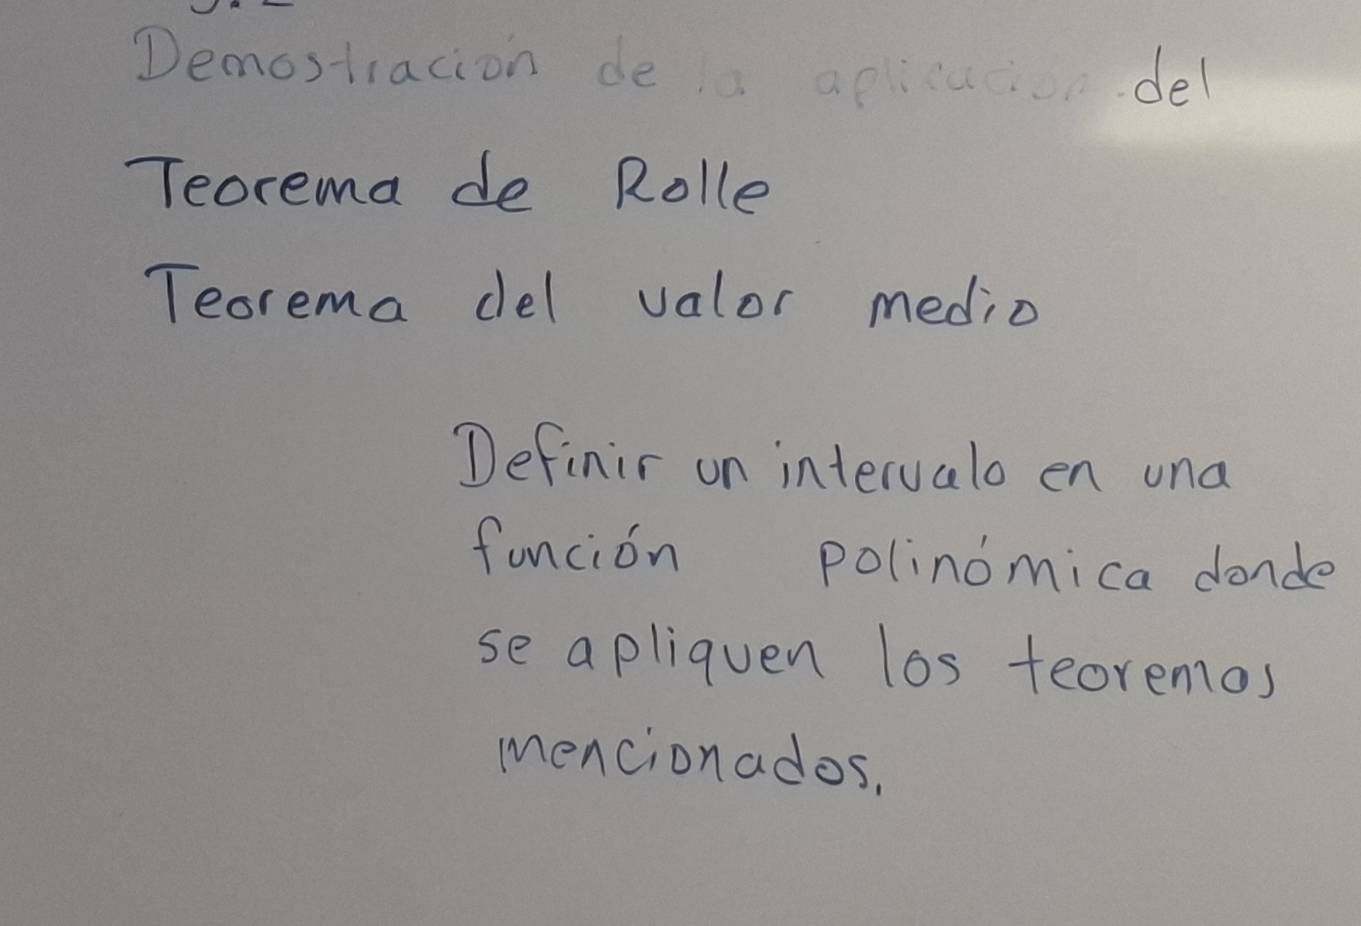 Demostración de la aplicación del
Teorema de Rolle
Teorema del valor medio
Definir un intervalo en una
función polinómica donde
se apliquen los teoremas
mencionados.